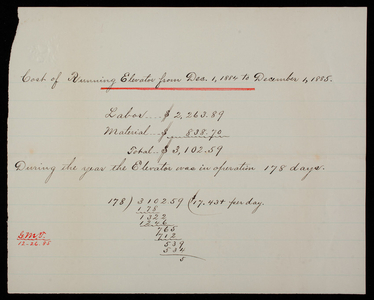 Cost of Running Elevator from Dec. 1, 1884 to December 1, 1885.
Labor .... $ 2,263.89
Material .... $ 838.70
Total .. $ 3,102.59
During the year the Elevator was in operation 178 days.
178 ) 310259 ( 17.43+ per day.
178
1322
1246
765
712
539
534
5
12.26.85